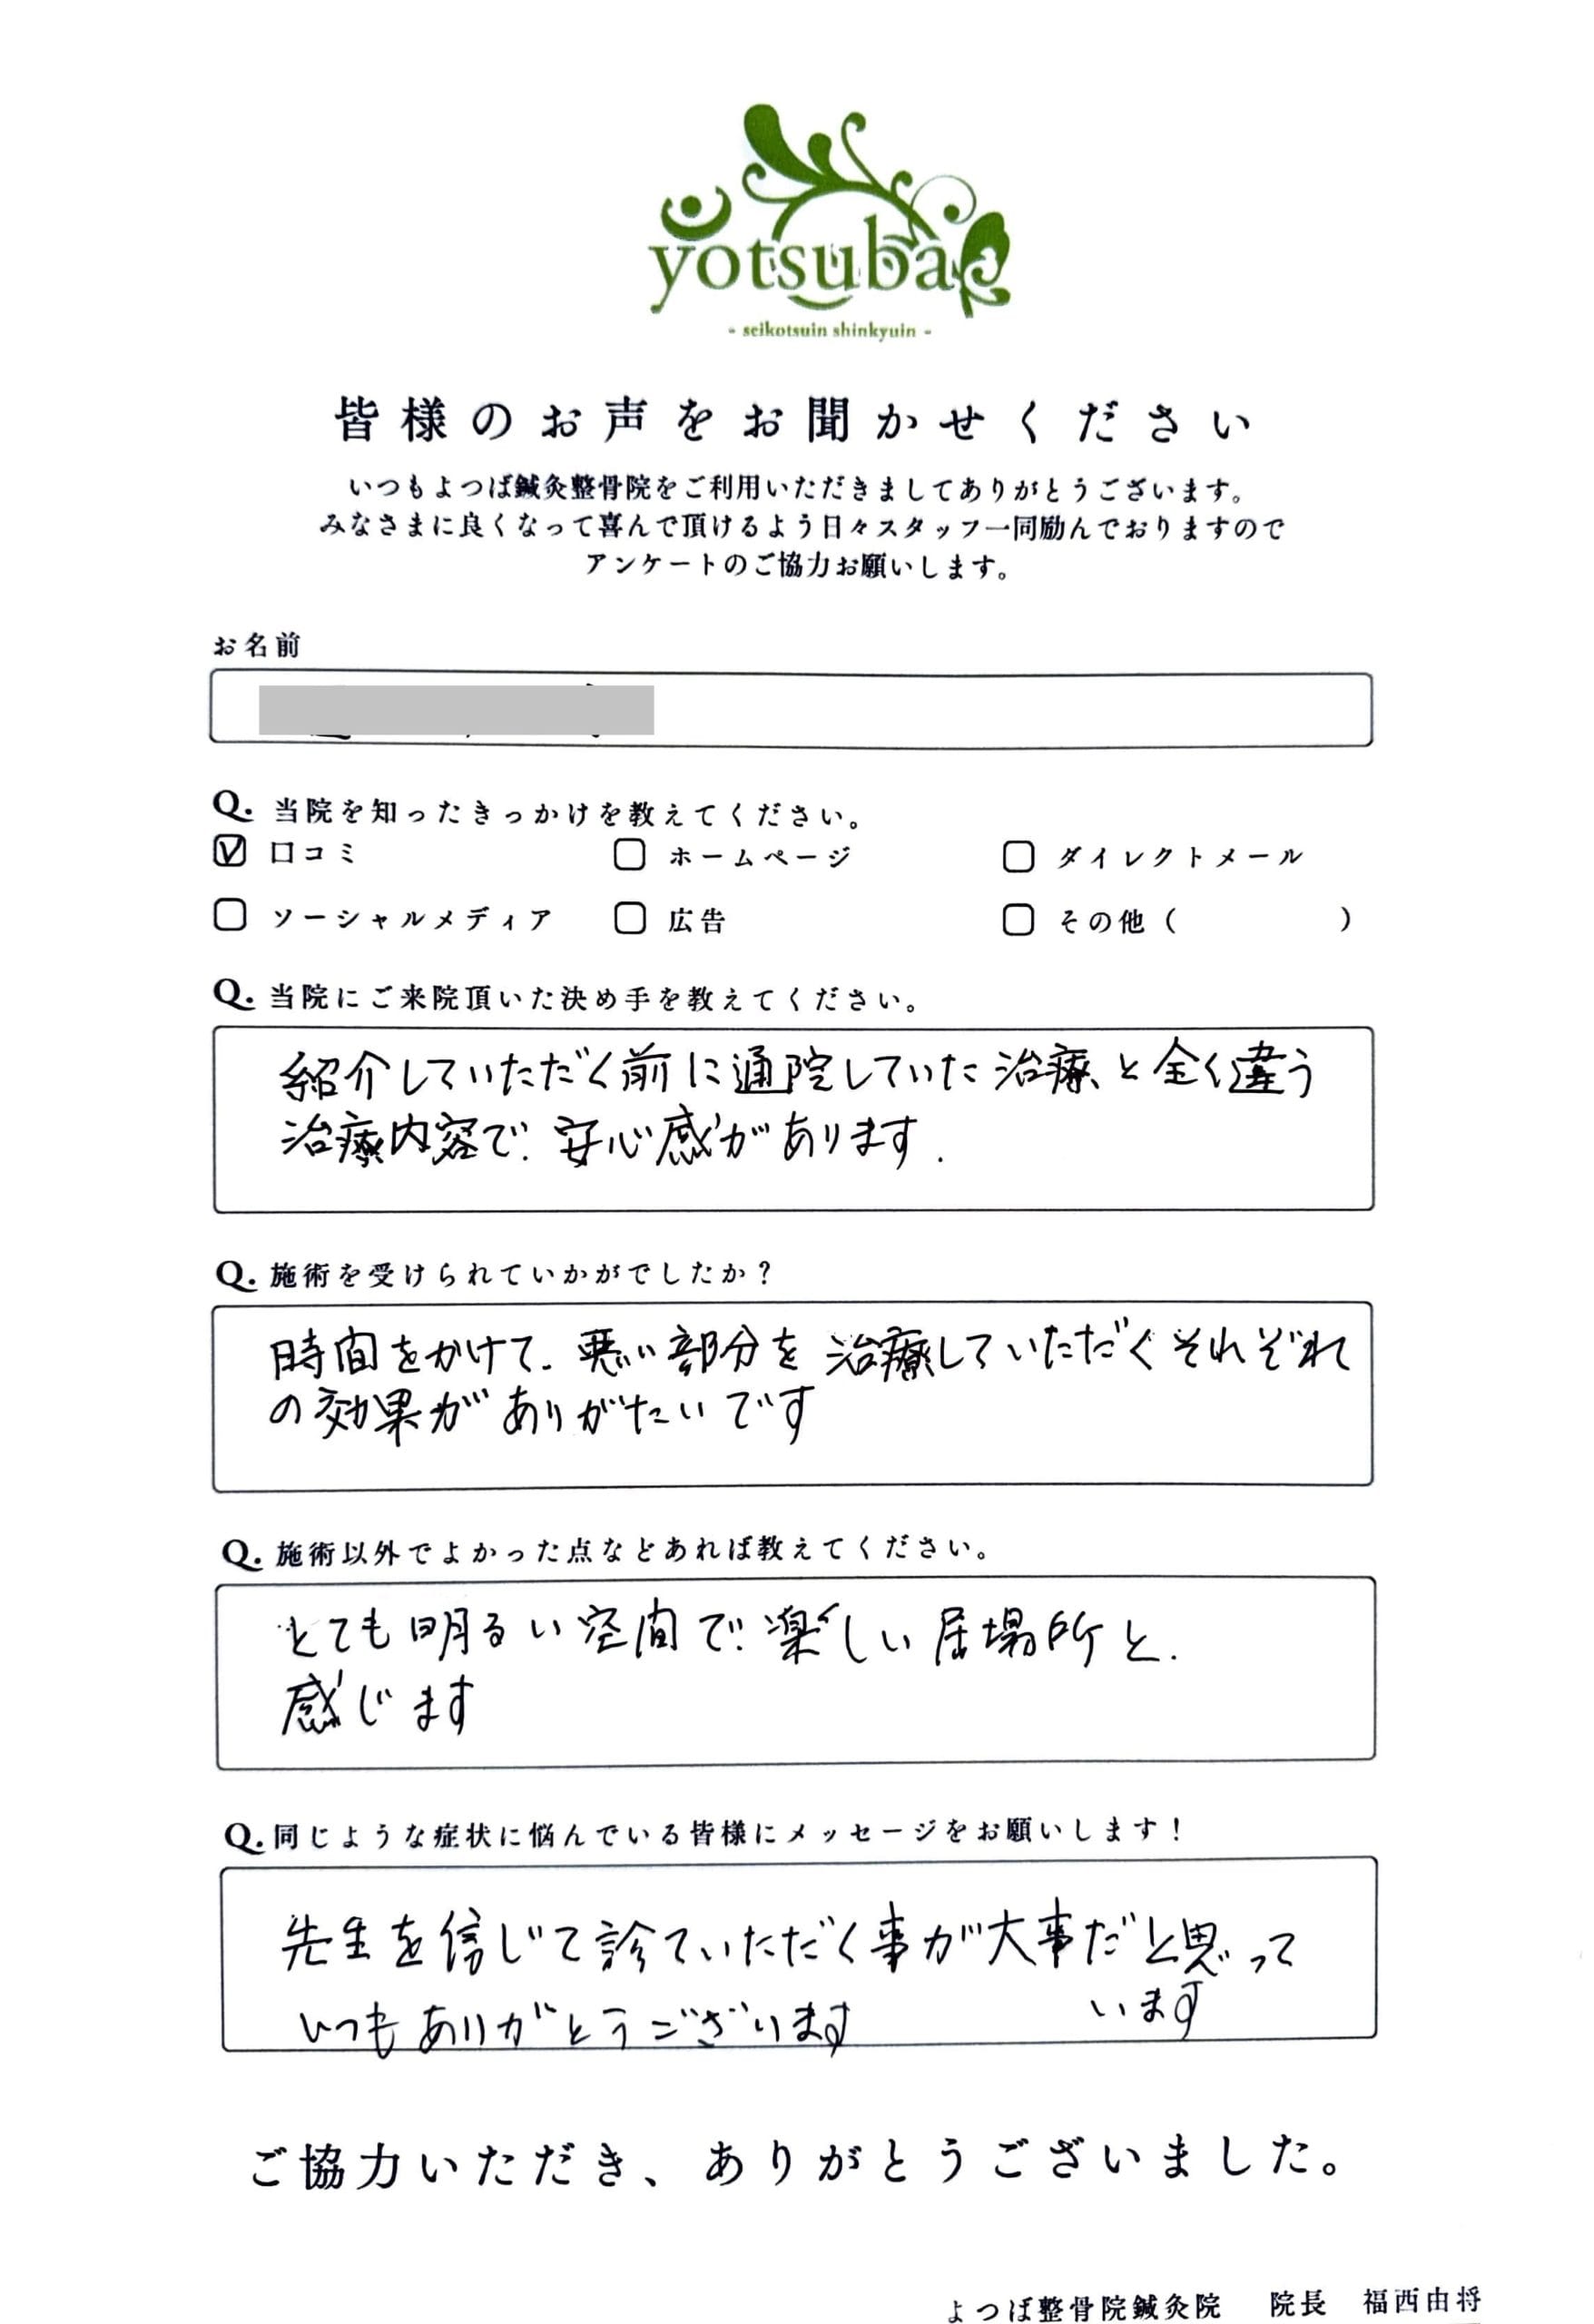 yotsuba
- seikotsuin shinkyuin -
皆様のお声をお聞かせください
いつもよつば鍼灸整骨院をご利用いただきましてありがとうございます。
みなさまに良くなって喜んで頂けるよう日々スタッフ一同励んでおりますので
アンケートのご協力お願いします。
お名前
Q. 当院を知ったきっかけを教えてください。
☑ 口コミ □ ホームページ □ ダイレクトメール
□ ソーシャルメディア □ 広告 □ その他（ ）
Q. 当院にご来院頂いた決め手を教えてください。
紹介していただく前に通院していた治療と全く違う
治療内容で、安心感があります.
Q. 施術を受けられていかがでしたか？
時間をかけて、悪い部分を治療していただくそれぞれ
の効果がありがたいです
Q. 施術以外でよかった点などあれば教えてください。
とても明るい空間で、楽しい居場所と、
感じます
Q. 同じような症状に悩んでいる皆様にメッセージをお願いします！
先生を信じて診ていただく事が大事だと思って
います
いつもありがとうございます
ご協力いただき、ありがとうございました。
よつば整骨院鍼灸院 院長 福西由将